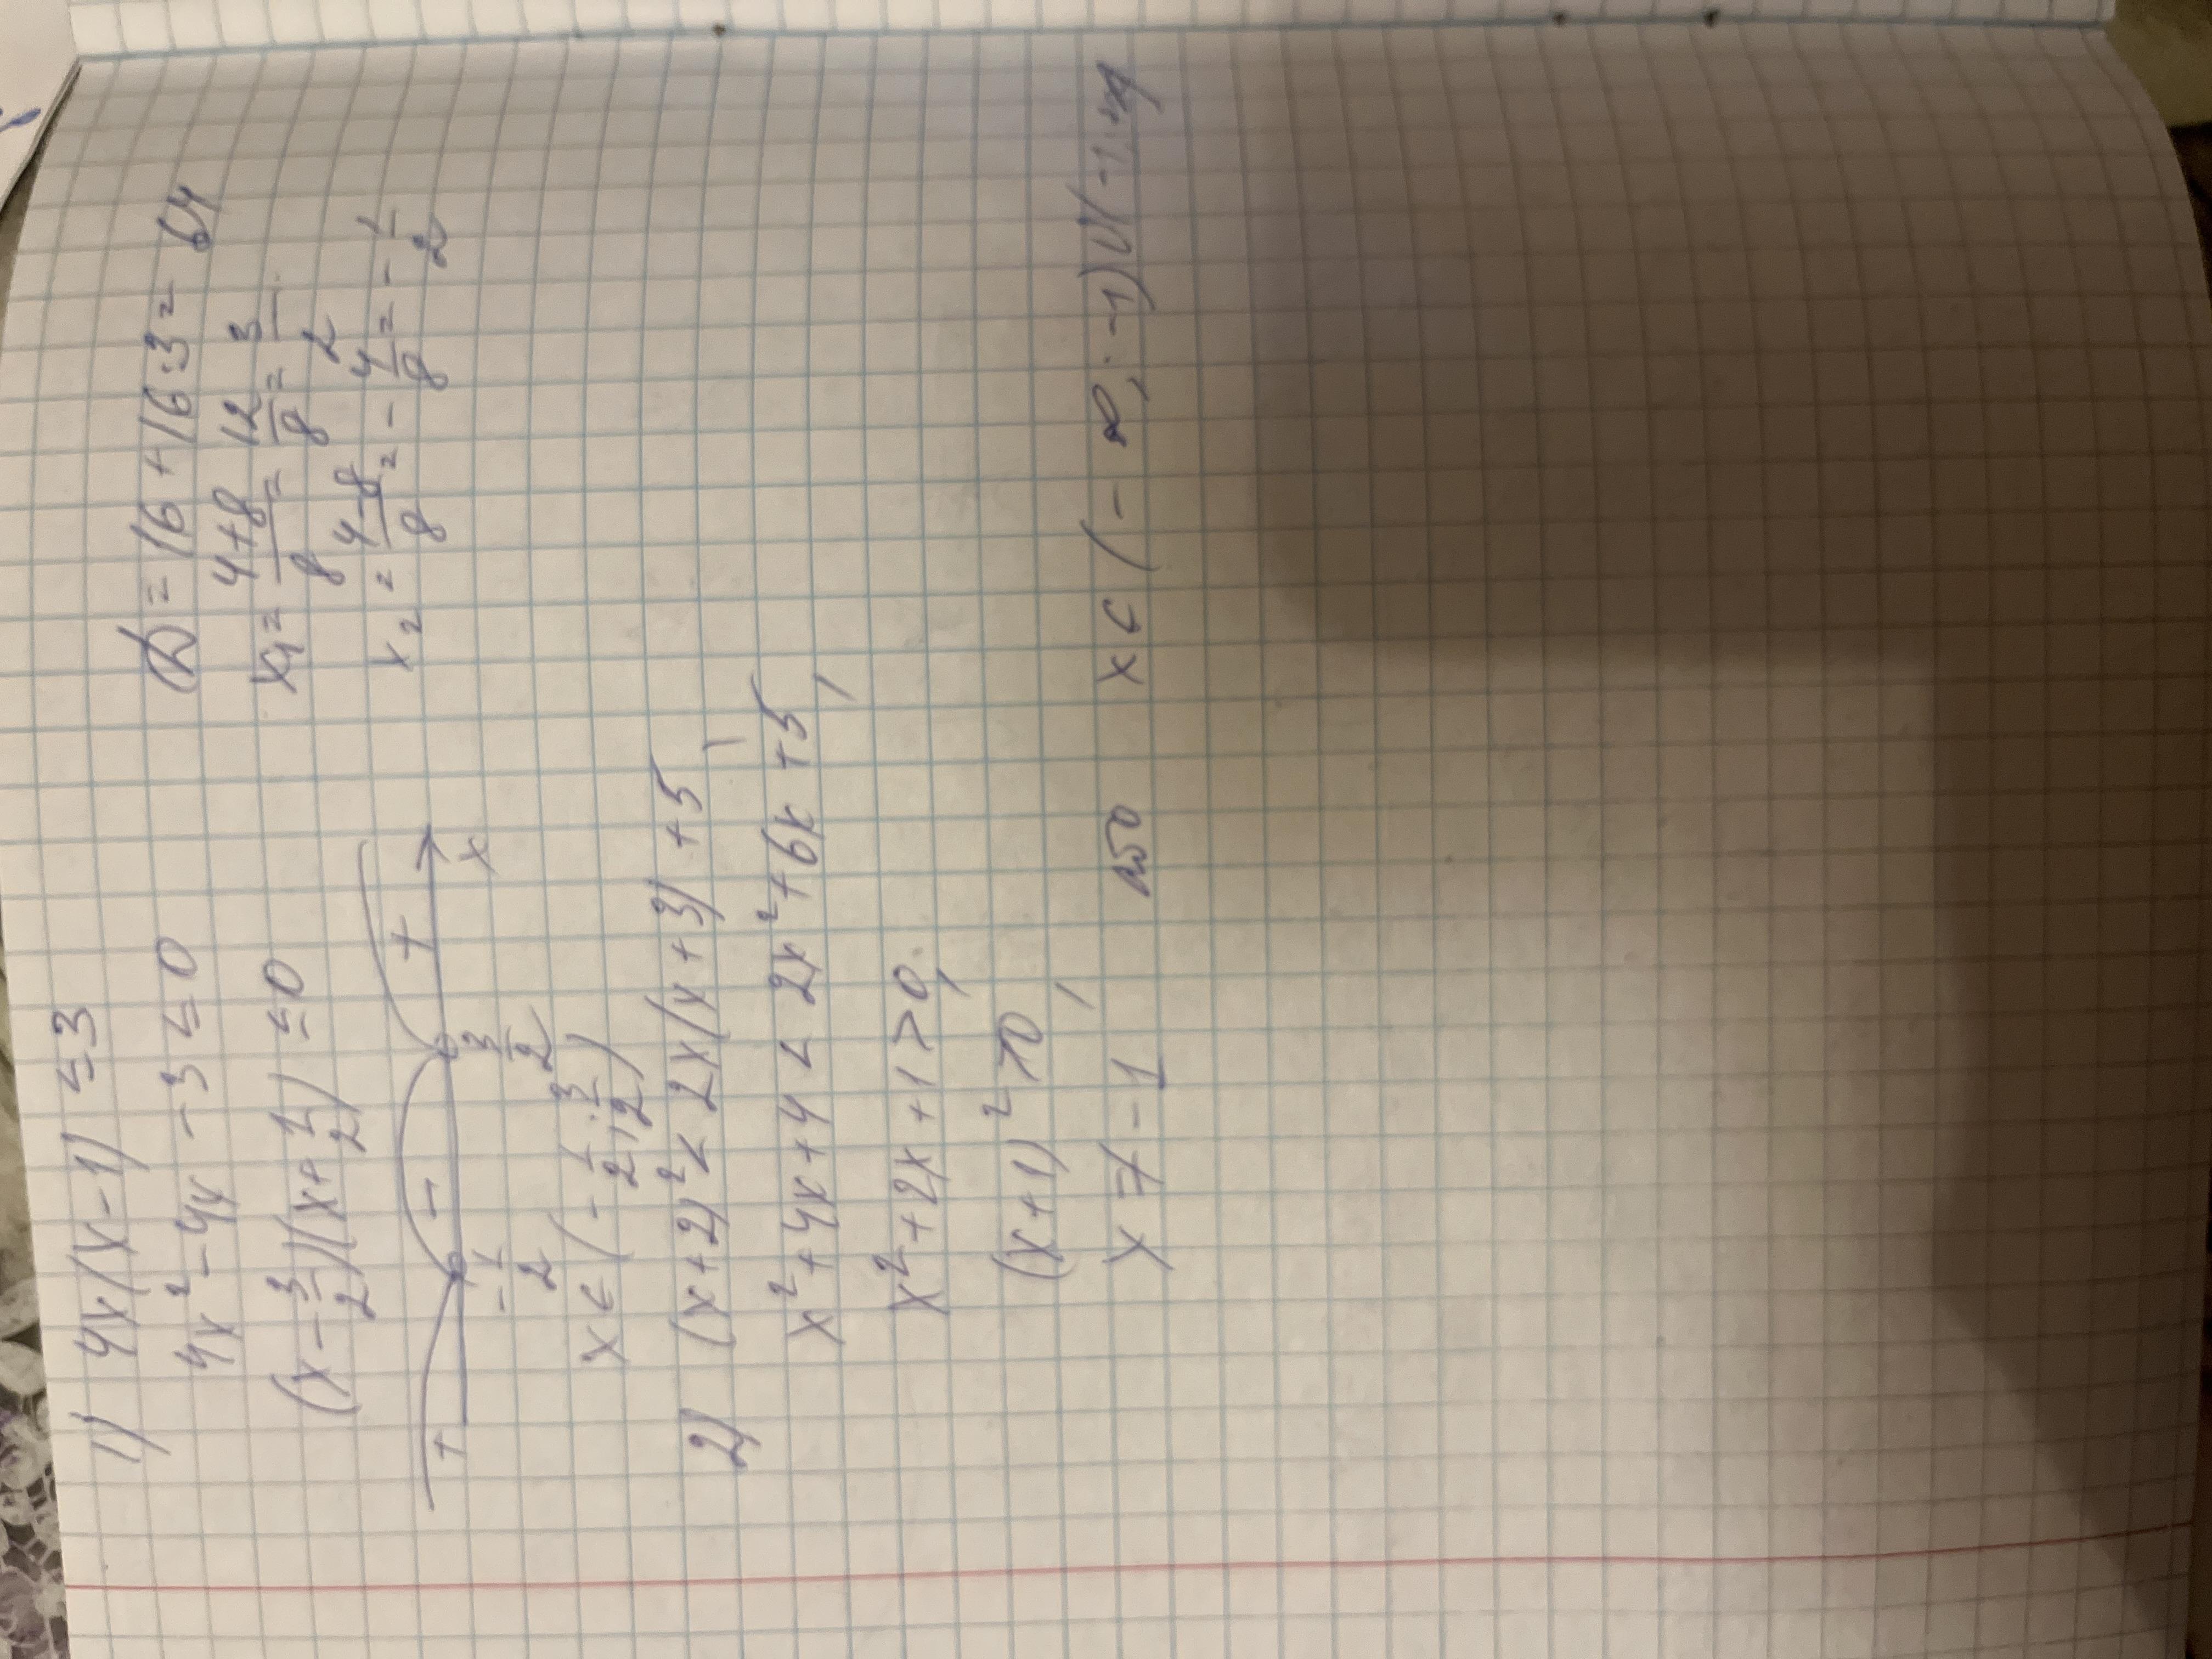 1) 4x(x-1) ≤ 3
4x² - 4x - 3 ≤ 0
(x - 3/2)(x + 1/2) ≤ 0
D = 16 + 16·3 = 64
x₁ = (4+8)/8 = 12/8 = 3/2
x₂ = (4-8)/8 = - 4/8 = - 1/2
+ - + x
- 1/2 3/2
x ∈ (- 1/2; 3/2)
2) (x+2)² < 2x(x+3) + 5
x² + 4x + 4 < 2x² + 6x + 5;
x² + 2x + 1 > 0;
(x+1)² > 0;
x ≠ -1 або x ∈ (-∞; -1) ∪ (-1; +∞)